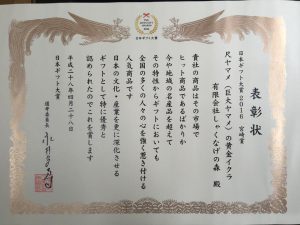 日本ギフト大賞
表彰状
日本ギフト大賞2016 宮崎賞
尺ヤマメ（巨大ヤマメ）の黄金イクラ
有限会社しゃくなげの森 殿
貴社の商品はその市場で
ヒット商品であるばかりか
今や地域の名産品を超えて
その特性からギフトにおいても
全国の多くの人々の心を強く惹き付ける
人気商品です
日本の文化・産業を更に深化させる
ギフトとして特に優秀と
認められたのでこれを賞します
平成二十八年四月二十八日
日本ギフト大賞
選考委員長